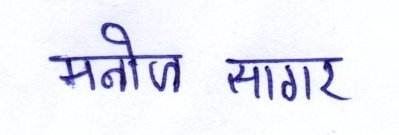 मनोज सागर